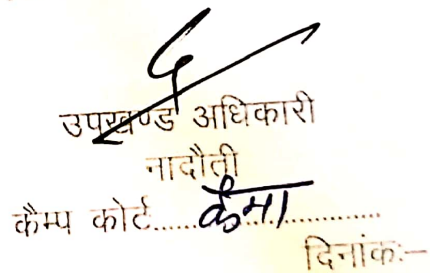 उपखण्ड अधिकारी
नादौती
कैम्प कोर्ट......कैमा..................
दिनांकः–